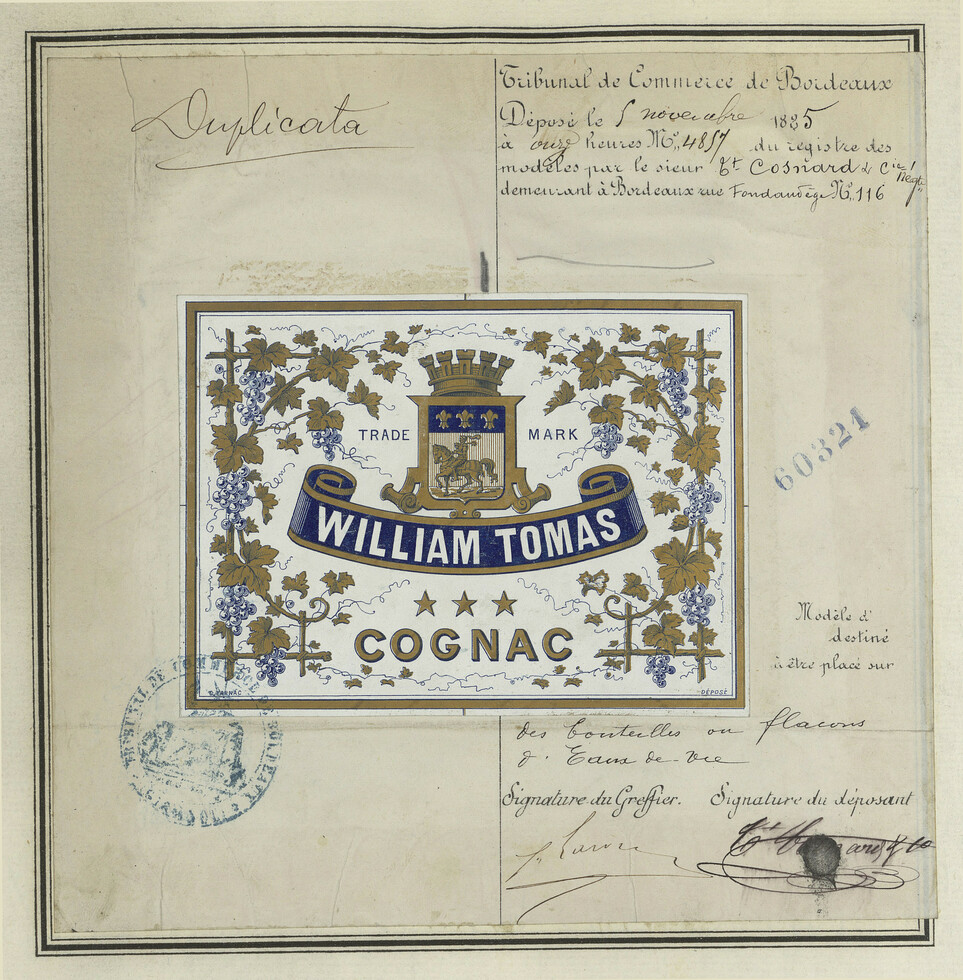 Duplicata
Tribunal de Commerce de Bordeaux
Déposé le 5 novembre 1885
à onze heures No. 4857 du registre des
modèles par le sieur Ct Cosnard & Cie Negts
demeurant à Bordeaux rue Fondaudège No. 116
TRADE MARK
WILLIAM TOMAS
COGNAC
DÉPOSÉ
60321
Modèle d'
destiné
à être placé sur
des bouteilles ou flacons
d'Eaux-de-vie
Signature du Greffier. Signature du déposant
TRIBUNAL DE COMMERCE DE BORDEAUX